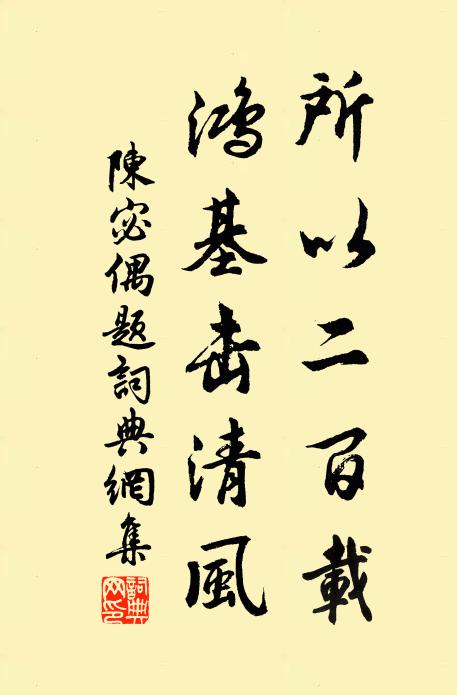 所以二百載
鴻基击清風
陳宓偶題詞典網集
詞典
网印